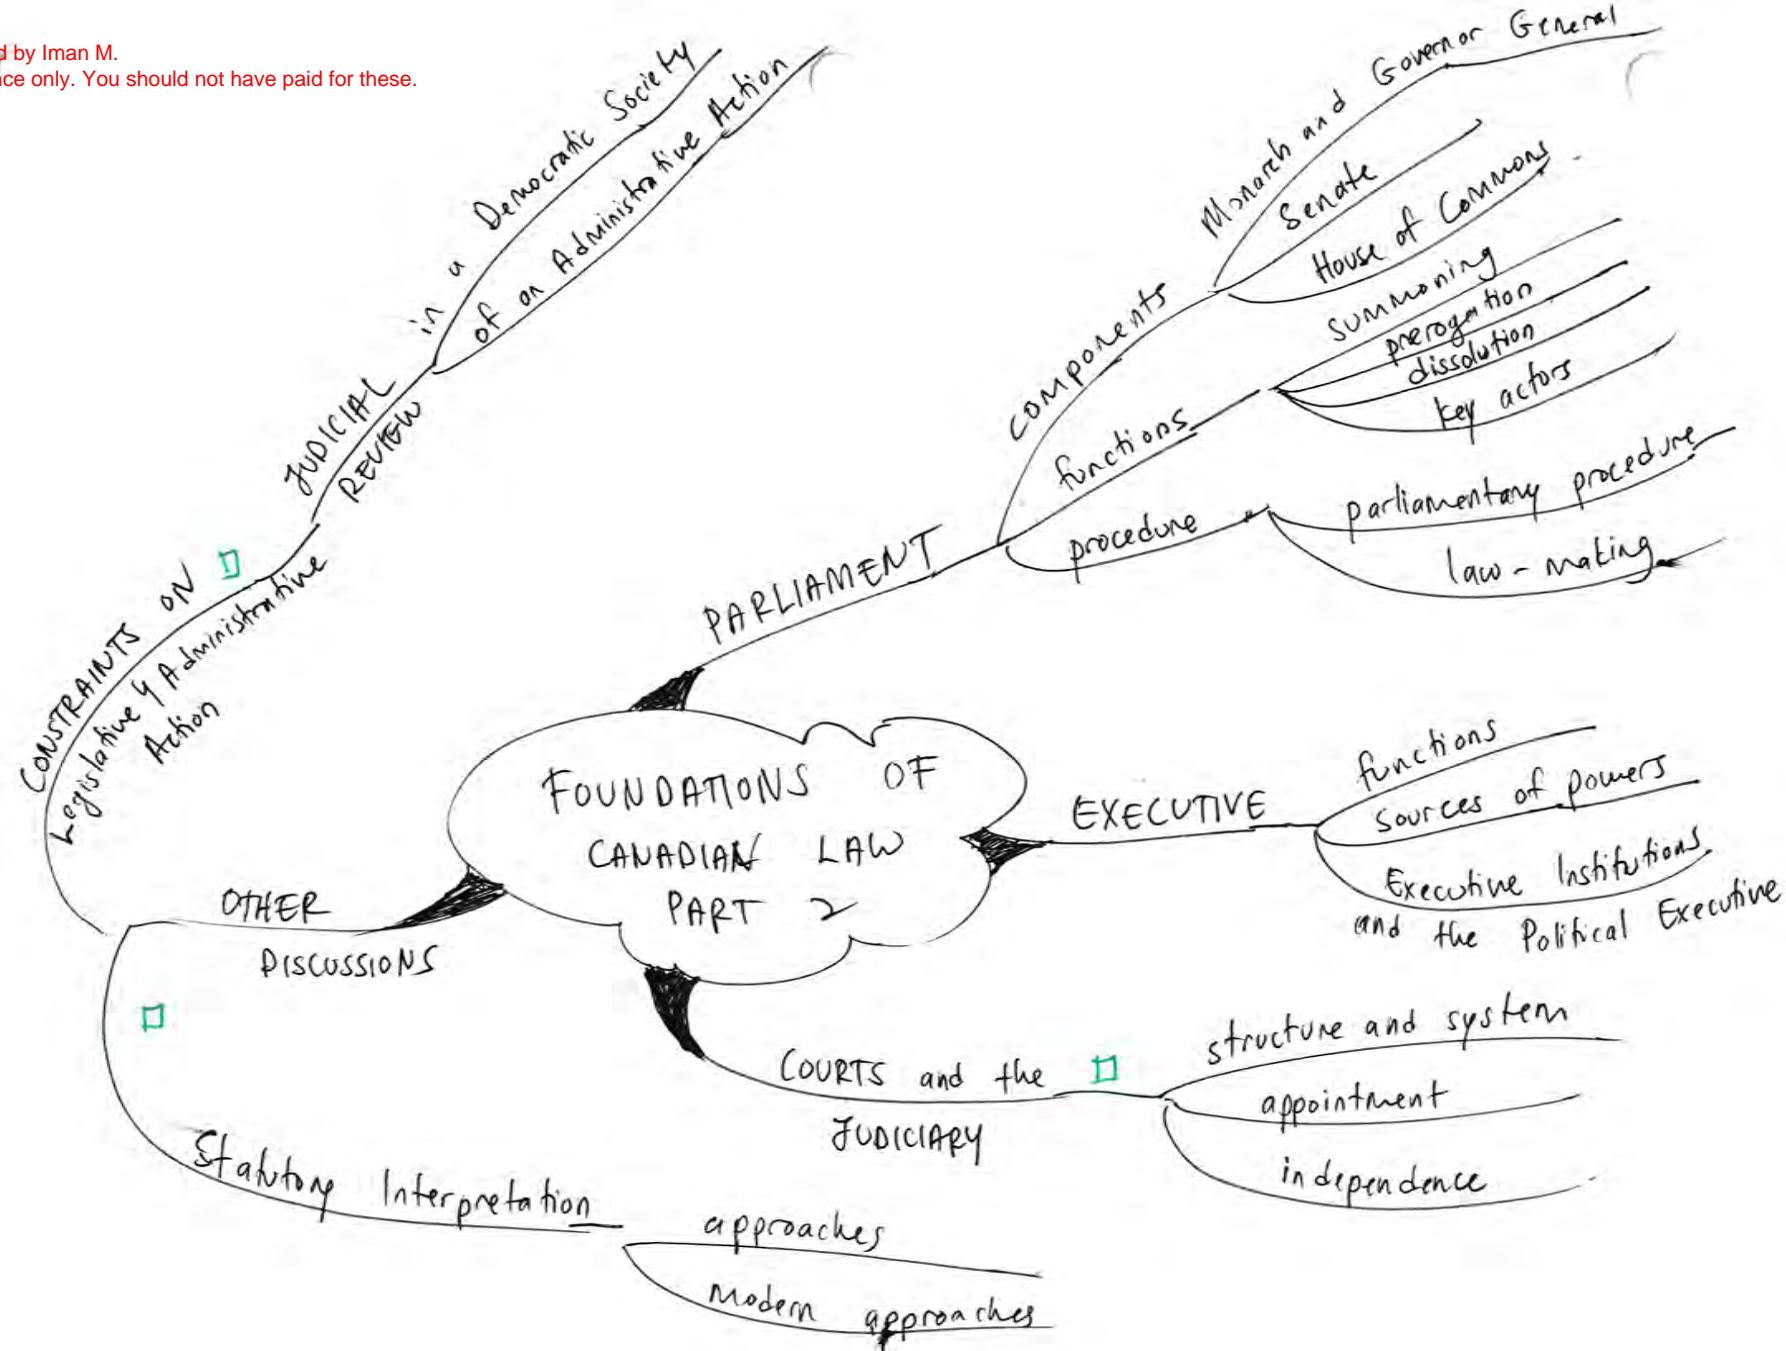 d by Iman M.
nce only. You should not have paid for these.
FOUNDATIONS OF
CANADIAN LAW
PART 2
PARLIAMENT
components
Monarch and Governor General
Senate
House of Commons
functions
summoning
prerogation
dissolution
key actors
procedure
parliamentary procedure
law-making
EXECUTIVE
functions
sources of powers
Executive Institutions
and the Political Executive
COURTS and the
JUDICIARY
structure and system
appointment
independence
OTHER
DISCUSSIONS
CONSTRAINTS ON
Legislative & Administrative
Action
JUDICIAL
REVIEW
in a Democratic Society
of an Administrative Action
Statutory Interpretation
approaches
Modern approaches